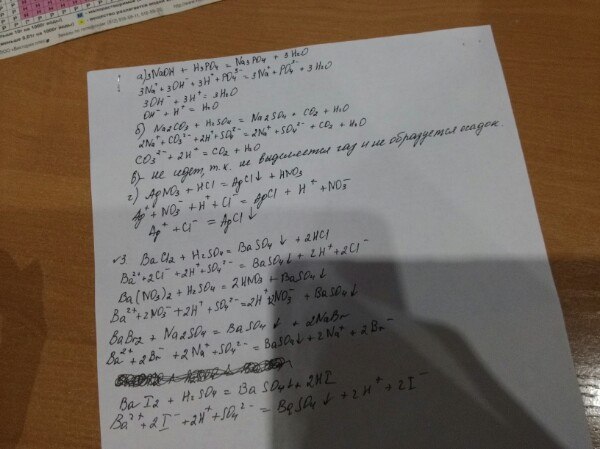 а) 3NaOH + H3PO4 = Na3PO4 + 3H2O
3Na⁺ + 3OH⁻ + 3H⁺ + PO4³⁻ = 3Na⁺ + PO4³⁻ + 3H2O
3OH⁻ + 3H⁺ = 3H2O
OH⁻ + H⁺ = H2O
б) Na2CO3 + H2SO4 = Na2SO4 + CO2 + H2O
2Na⁺ + CO3²⁻ + 2H⁺ + SO4²⁻ = 2Na⁺ + SO4²⁻ + CO2 + H2O
CO3²⁻ + 2H⁺ = CO2 + H2O
в) - не идет, т.к. не выделяется газ и не образуется осадок.
г) AgNO3 + HCl = AgCl↓ + HNO3
Ag⁺ + NO3⁻ + H⁺ + Cl⁻ = AgCl + H⁺ + NO3⁻
Ag⁺ + Cl⁻ = AgCl↓
√3. BaCl2 + H2SO4 = BaSO4↓ + 2HCl
Ba²⁺ + 2Cl⁻ + 2H⁺ + SO4²⁻ = BaSO4↓ + 2H⁺ + 2Cl⁻
Ba(NO3)2 + H2SO4 = 2HNO3 + BaSO4↓
Ba²⁺ + 2NO3⁻ + 2H⁺ + SO4²⁻ = 2H⁺ 2NO3⁻ + BaSO4↓
BaBr2 + Na2SO4 = BaSO4↓ + 2NaBr
Ba²⁺ + 2Br⁻ + 2Na⁺ + SO4²⁻ = BaSO4↓ + 2Na⁺ + 2Br⁻
BaI2 + H2SO4 = BaSO4↓ + 2HI
Ba²⁺ + 2I⁻ + 2H⁺ + SO4²⁻ = BaSO4↓ + 2H⁺ + 2I⁻